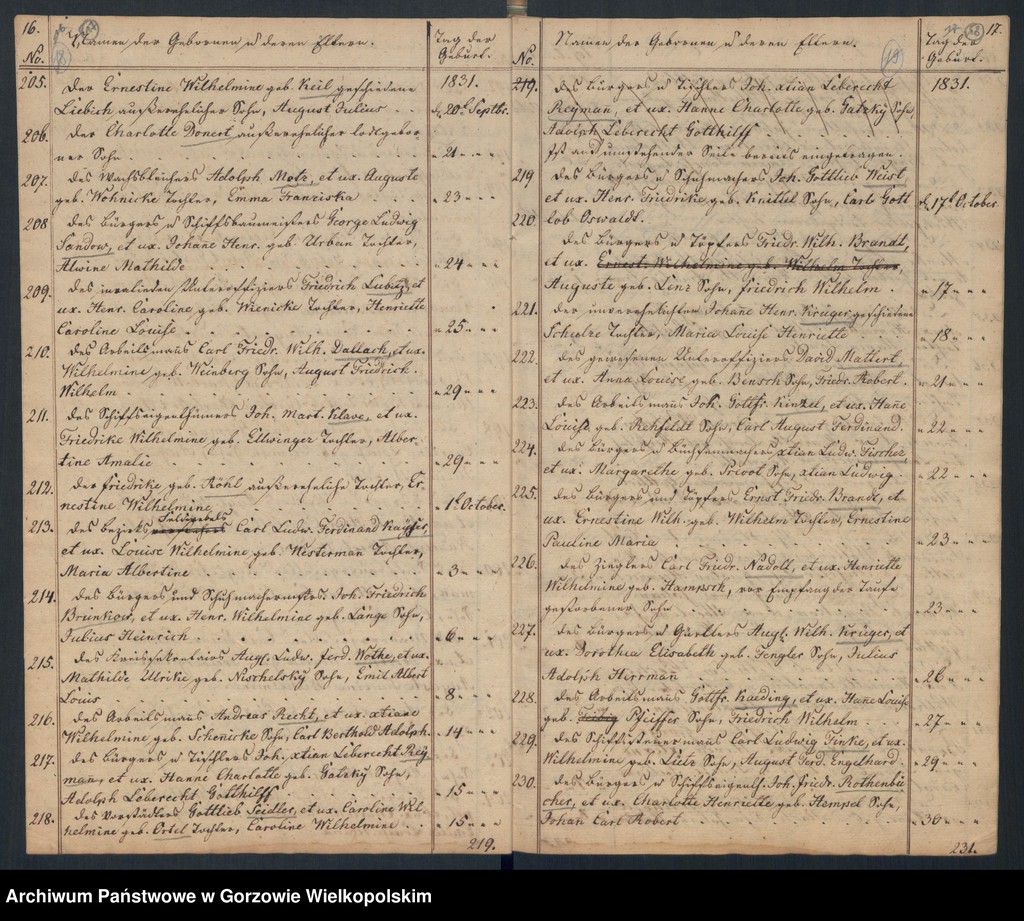 16.
No.
Namen der Gebornen u deren Eltern.
Tag der
Geburt.
205.
Der Ernestine Wilhelmine geb. Keil geschiedene
1831.
Liebich außerehelicher Sohn, August Julius
20t Septbr.
206.
Der Charlotte Donert außerehelicher todtgebor-
ner Sohn
" 21 " " "
207.
Des Wachsbleichers Adolph Motz, et ux. Auguste
geb. Wohnicke Tochter, Emma Franziska
" 23 " " "
208
Des Bürgers u Schiffsbaumeisters George Ludwig
Sandow, et ux. Johañe Henr. geb. Urban Tochter,
Alwine Mathilde
" 24 " " "
209.
Des invaliden Unteroffiziers Friedrich Lubitz, et
ux. Henr. Caroline geb. Wienicke Tochter, Henriette
Caroline Louise
" 25 " " "
210.
Des Arbeitsmañs Carl Friedr. Wilh. Dallach, et ux.
Wilhelmine geb. Weinberg Sohn, August Friedrich
Wilhelm
" 29 " " "
211.
Des Schiffseigenthümers Joh. Mart. Klave, et ux.
Friedrike Wilhelmine geb. Ellwinger Tochter, Alber-
tine Amalie
" 29 " " "
212.
Der Friedrike geb. Röhl außereheliche Tochter, Er-
nestine Wilhelmine
1t October.
213.
Des Bezirks Feldwebels Carl Ludw. Ferdinand Kayser,
et ux. Louise Wilhelmine geb. Westerman Tochter,
Maria Albertine
" 3 " " "
214.
Des Bürgers und Schuhmachermstrs. Joh. Friedrich
Brünkow, et ux. Henr. Wilhelmine geb. Länge Sohn,
Julius Heinrich
" 6 " " "
215.
Des Kreissekretairs Aug. Ludw. Ferd. Wothe, et ux.
Mathilde Ulrike geb. Nischelsky Sohn, Emil Albert
Louis
" 8 " " "
216.
Des Arbeitsmañs Andreas Recht, et ux. xtiane
Wilhelmine geb. Schönicke Sohn, Carl Berthold Adolph.
" 14 " " "
217.
Des Bürgers u Tischlers Joh. xtian Leberecht Rey-
mañ, et ux. Hanne Charlotte geb. Gatzky Sohn,
Adolph Leberecht Gotthilff
" 15 " " "
218.
Des Vorstädters Gottlieb Seidler, et ux. Caroline Wil-
helmine geb. Ortel Tochter, Caroline Wilhelmine
" 15 " " "
219.
17.
No.
Namen der Gebornen u deren Eltern.
Tag der
Geburt.
219.
Des Bürgers u Tischlers Joh. xtian Leberecht
1831.
Reyman, et ux. Hanne Charlotte geb. Gatzky Sohn,
Adolph Leberecht Gotthilff
Ist auf umstehender Seite bereits eingetragen.
219
Des Bürgers u Schuhmachers Joh. Gottlieb Weist,
et ux. Henr. Friedrike geb. Knittel Sohn, Carl Gott
17t October.
lob Oswaldt.
220.
Des Bürgers u Töpfers Friedr. Wilh. Brandt,
et ux. Ernest. Wilhelmine geb. Wilhelm Tochter,
Auguste geb. Lenz Sohn, Friedrich Wilhelm.
" 17 " " "
221.
Der unverehelichten Johañe Henr. Krüger geschiedene
Scholze Tochter, Maria Louise Henriette
" 18 " " "
222.
Des gewesenen Unteroffiziers David Mattert,
et ux. Anna Louise geb. Bensch Sohn, Friedr. Robert.
" 21 " " "
223.
Des Arbeitsmañs Joh. Gottfr. Kinzel, et ux. Hañe
Louise geb. Rehfeldt Sohn, Carl August Ferdinand.
" 22 " " "
224.
Des Bürgers u Büchsenmachers xtian Ludw. Fischer
et ux. Margarethe geb. Tricot Sohn, xtian Ludwig.
" 22 " " "
225.
Des Bürgers und Töpfers Ernst Friedr. Brandt, et
ux. Ernestine Wilh. geb. Wilhelm Tochter, Ernestine
Pauline Maria
" 23 " " "
226.
Des Zieglers Carl Friedr. Nadoll, et ux. Henriette
Wilhelmine geb. Hampsch, vor Empfang der Taufe
gestorbener Sohn
" 23 " " "
227.
Des Bürgers u Gürtlers Aug. Wilh. Krüger, et
ux. Dorothea Elisabeth geb. Fengler Sohn, Julius
Adolph Herrmañ
" 26 " " "
228.
Des Arbeitsmañs Gottfr. Kaeding, et ux. Hañe Louise
geb. Pfeiffer Sohn, Friedrich Wilhelm
" 27 " " "
229.
Des Schiffssteuermañs Carl Ludwig Finke, et ux.
Wilhelmine geb. Lietz Sohn, August Ferd. Engelhard.
" 29 " " "
230.
Des Bürgers u Schiffseigenth. Joh. Friedr. Rothenbü-
cher, et ux. Charlotte Henriette geb. Hempel Sohn,
Johan Carl Robert
" 30 " " "
231.
Archiwum Państwowe w Gorzowie Wielkopolskim